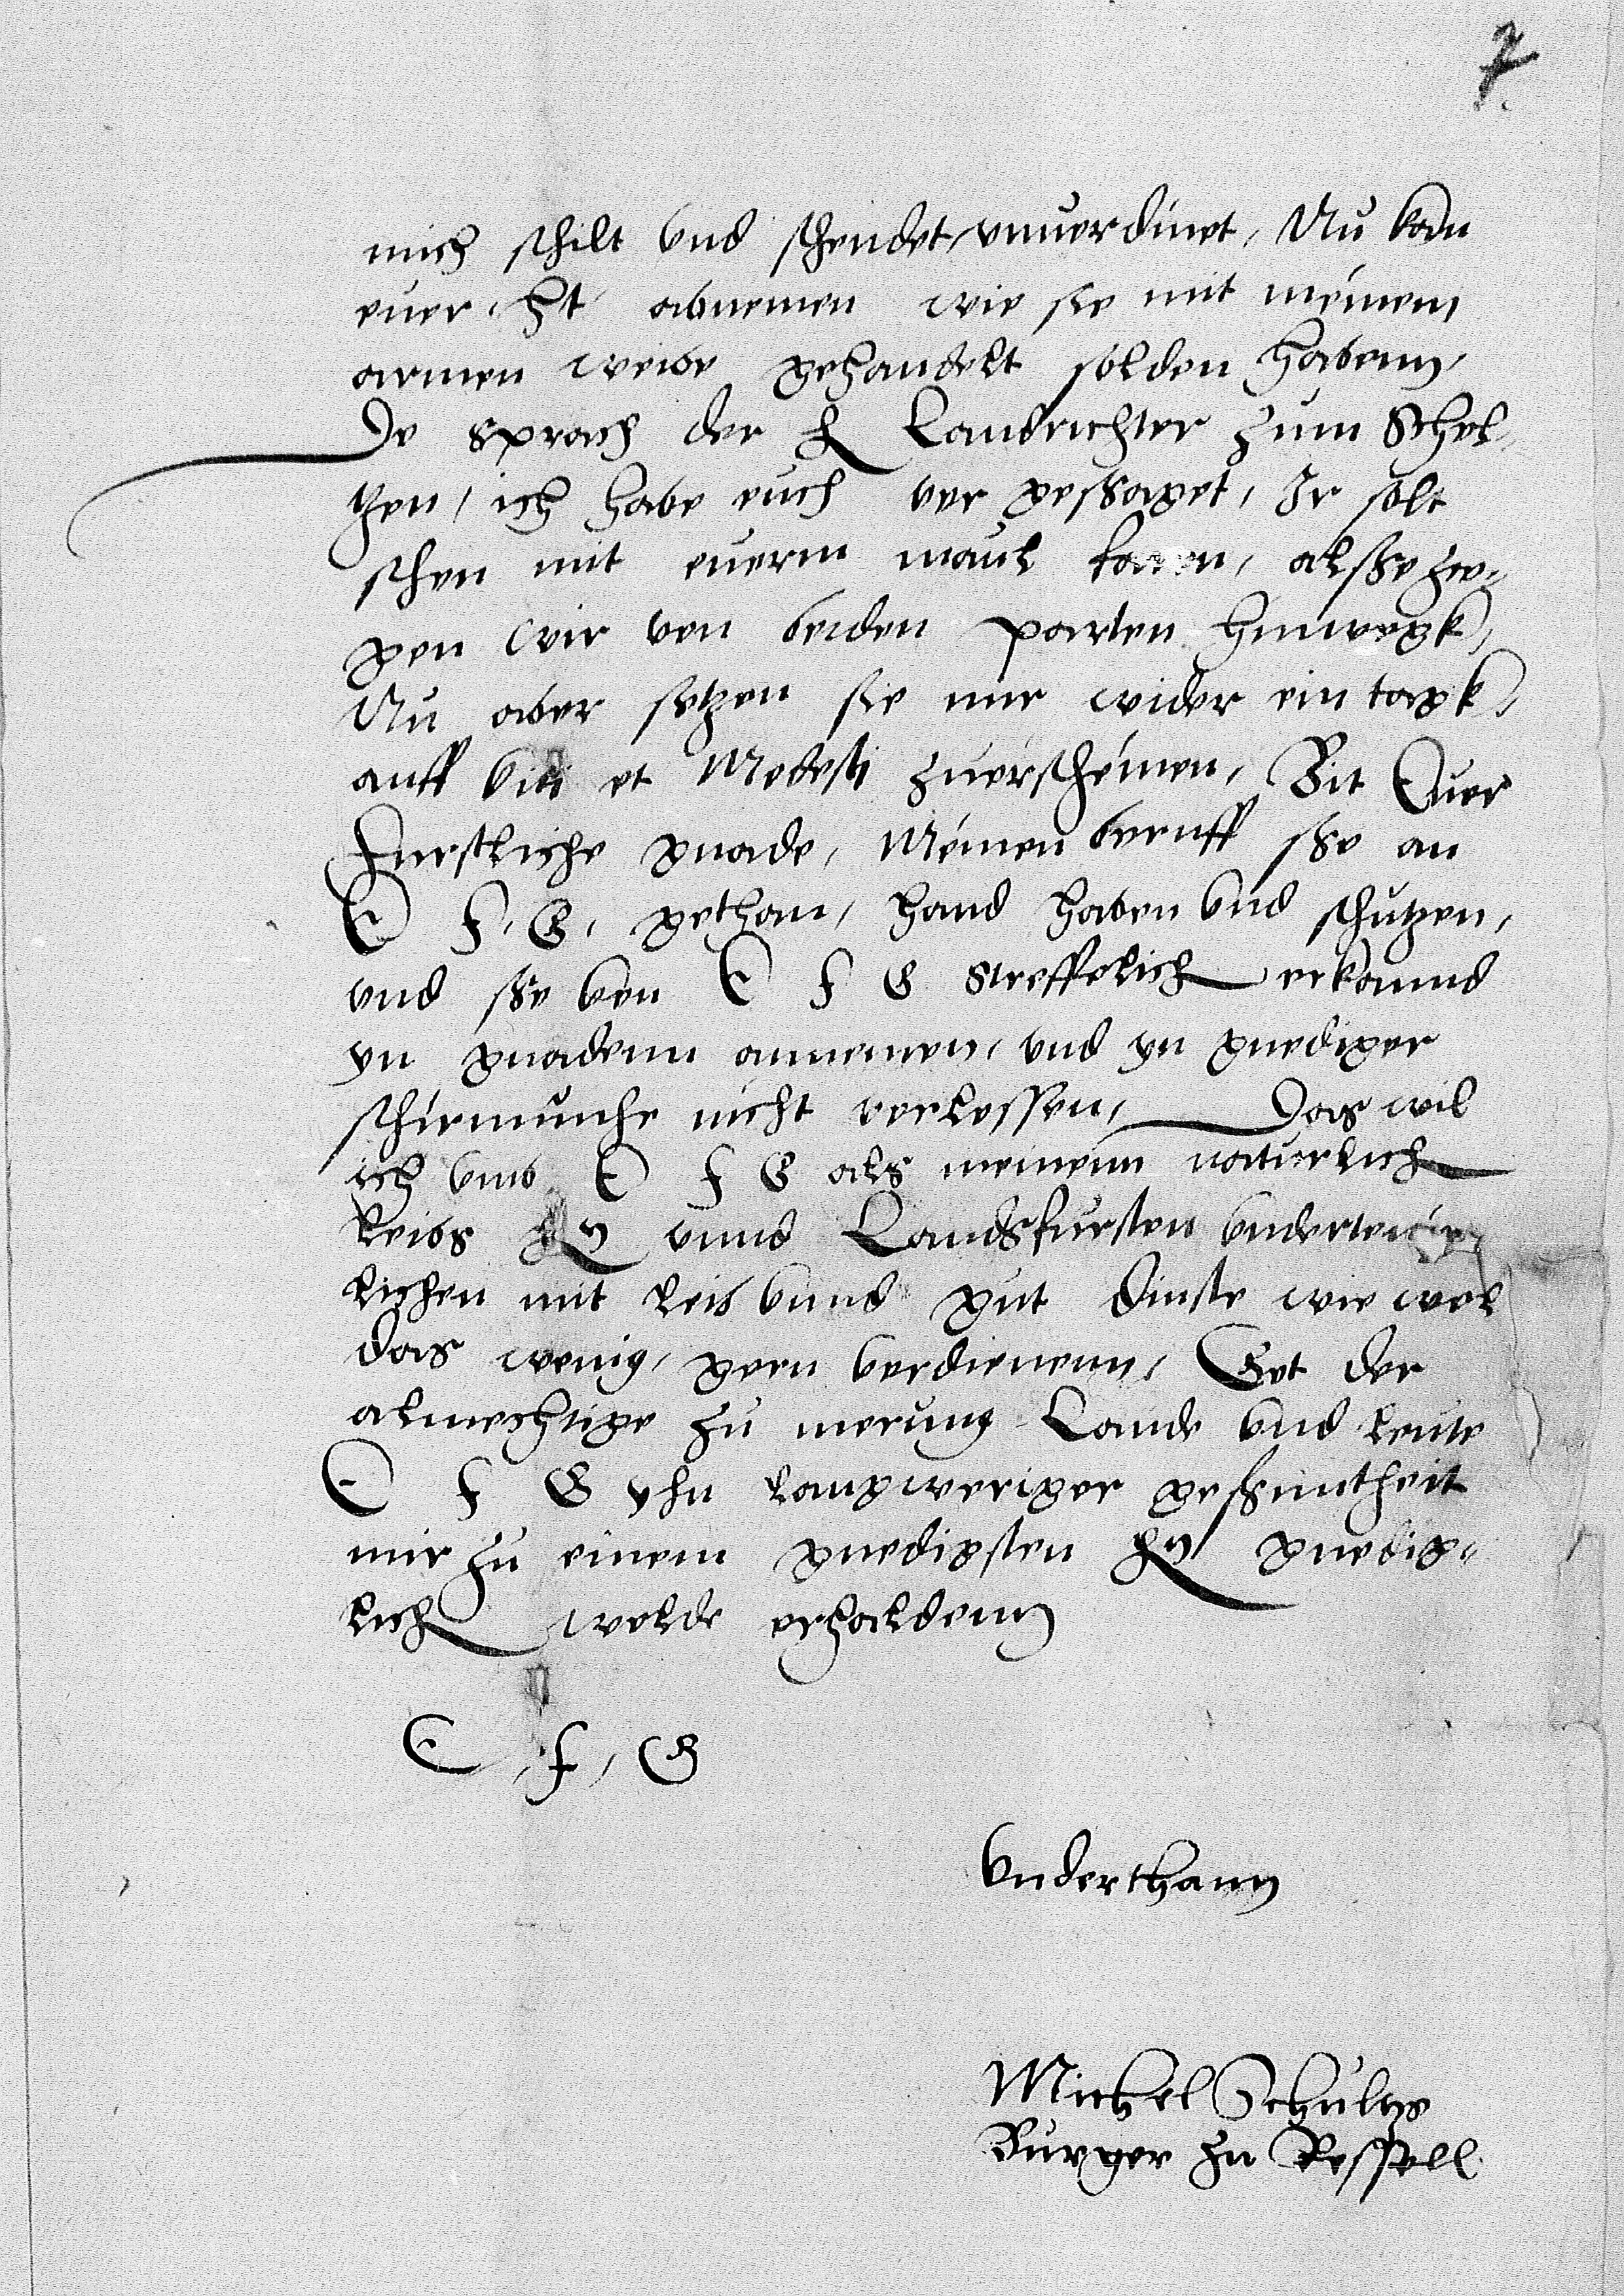 7
mich schilt vnd schendet, vnuerdinet, Nu kan
euer. ht. abnemen wie sie mit meinem
armen weibe gehandelt solden habenn,
Do sprach der h Landrichter zum Schol¬
tzen, ich habe euch vor gessaget, Ir solt
schon mit euerm maul faren, alsso zo¬
gen wir von beiden parten hinwegk,
Nu aber setzen sie mir wider ein tagk,
auff viti et Modesti zuerscheinen, Bit Euer
Furstliche gnade, Meinen beruff sso an
E F. G. gethan, hand haben vnd schutzen,
vnd sso von E F G streffelich erkannd
yn gnadenn annemen, vnd yn gnediger
schirmunche nicht verlossen, Das wil
ich vmb E F G als meinenn naturlich
leibs hn vnnd Landsfursten
lichen mit leib vnnd gut dinste wie wol
das wenig, gern verdienenn, Got der
almechtige zu merung Lande vnd leute
E F G yhn langweriger gessuntheit
mir zu einem gnedigsten hn gnedig¬
lich wolde erhaldenn
E, F, G
Vnderthann
Michel Schultz
Burger zu Ressell